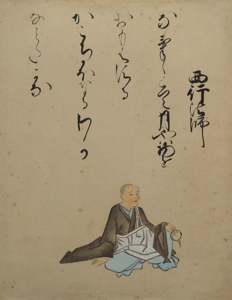 西行法師
なけゝとて月やは物を
おもはする
かこちかほなるわか
なみたかな